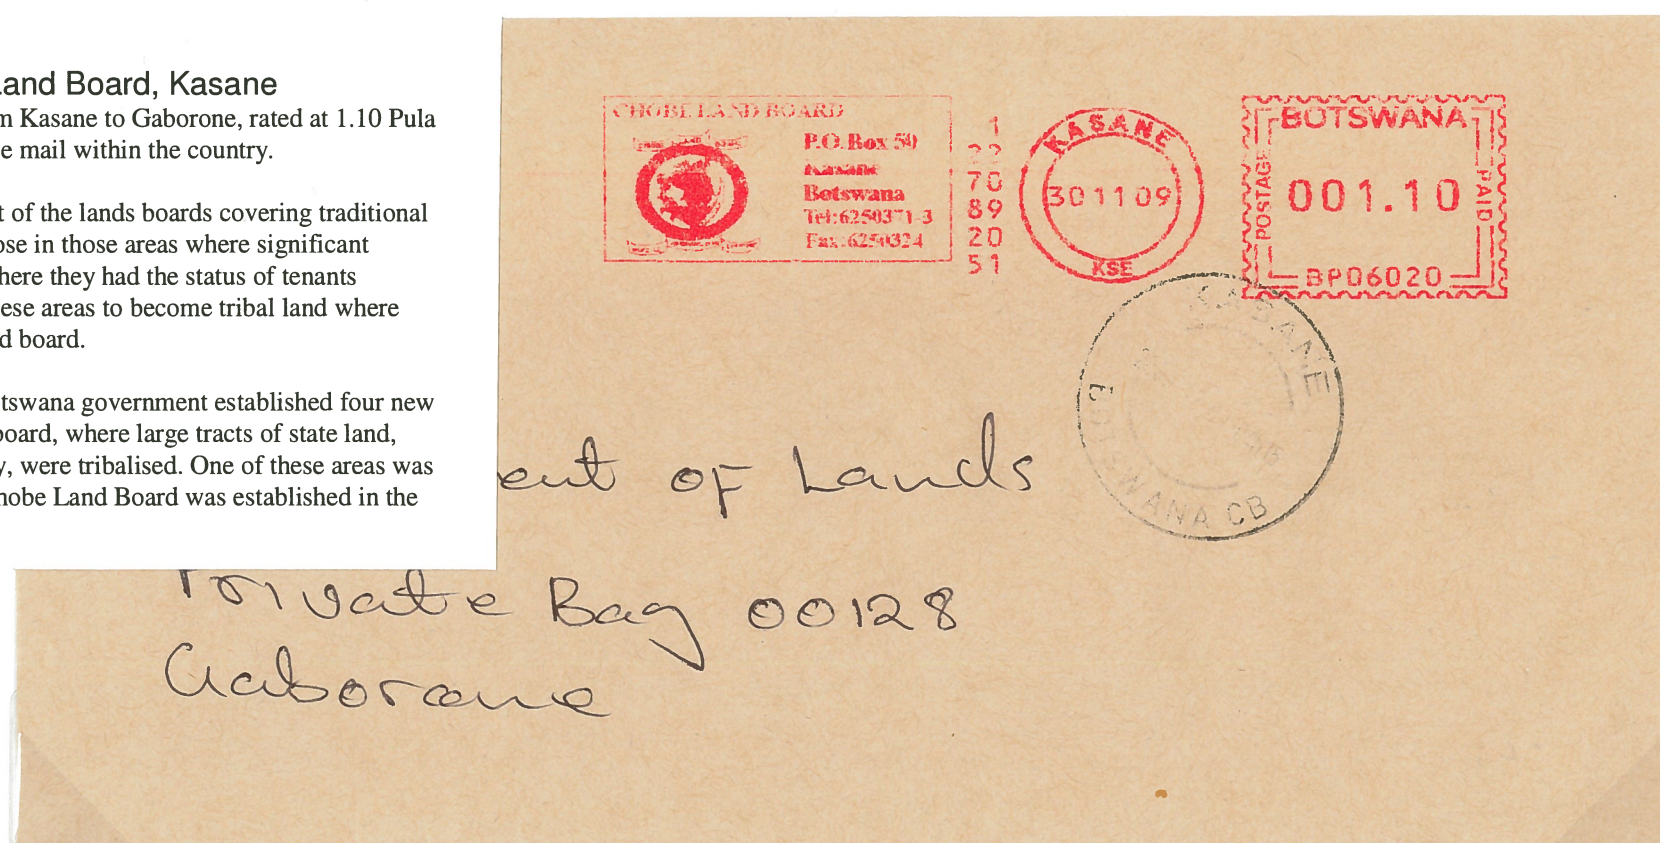 Land Board, Kasane
m Kasane to Gaborone, rated at 1.10 Pula
e mail within the country.
t of the lands boards covering traditional
ose in those areas where significant
here they had the status of tenants
ese areas to become tribal land where
d board.
tswana government established four new
board, where large tracts of state land,
y, were tribalised. One of these areas was
hobe Land Board was established in the
CHOBE LAND BOARD
P.O. Box 50
Kasane
Botswana
Tel:6250371-3
Fax:6250324
1
22
70
89
20
51
KASANE
30 11 09
KSE
BOTSWANA
POSTAGE
001.10
PAID
BP06020
KASANE
BOTSWANA CB
ent of Lands
Private Bag 00128
Gaborone